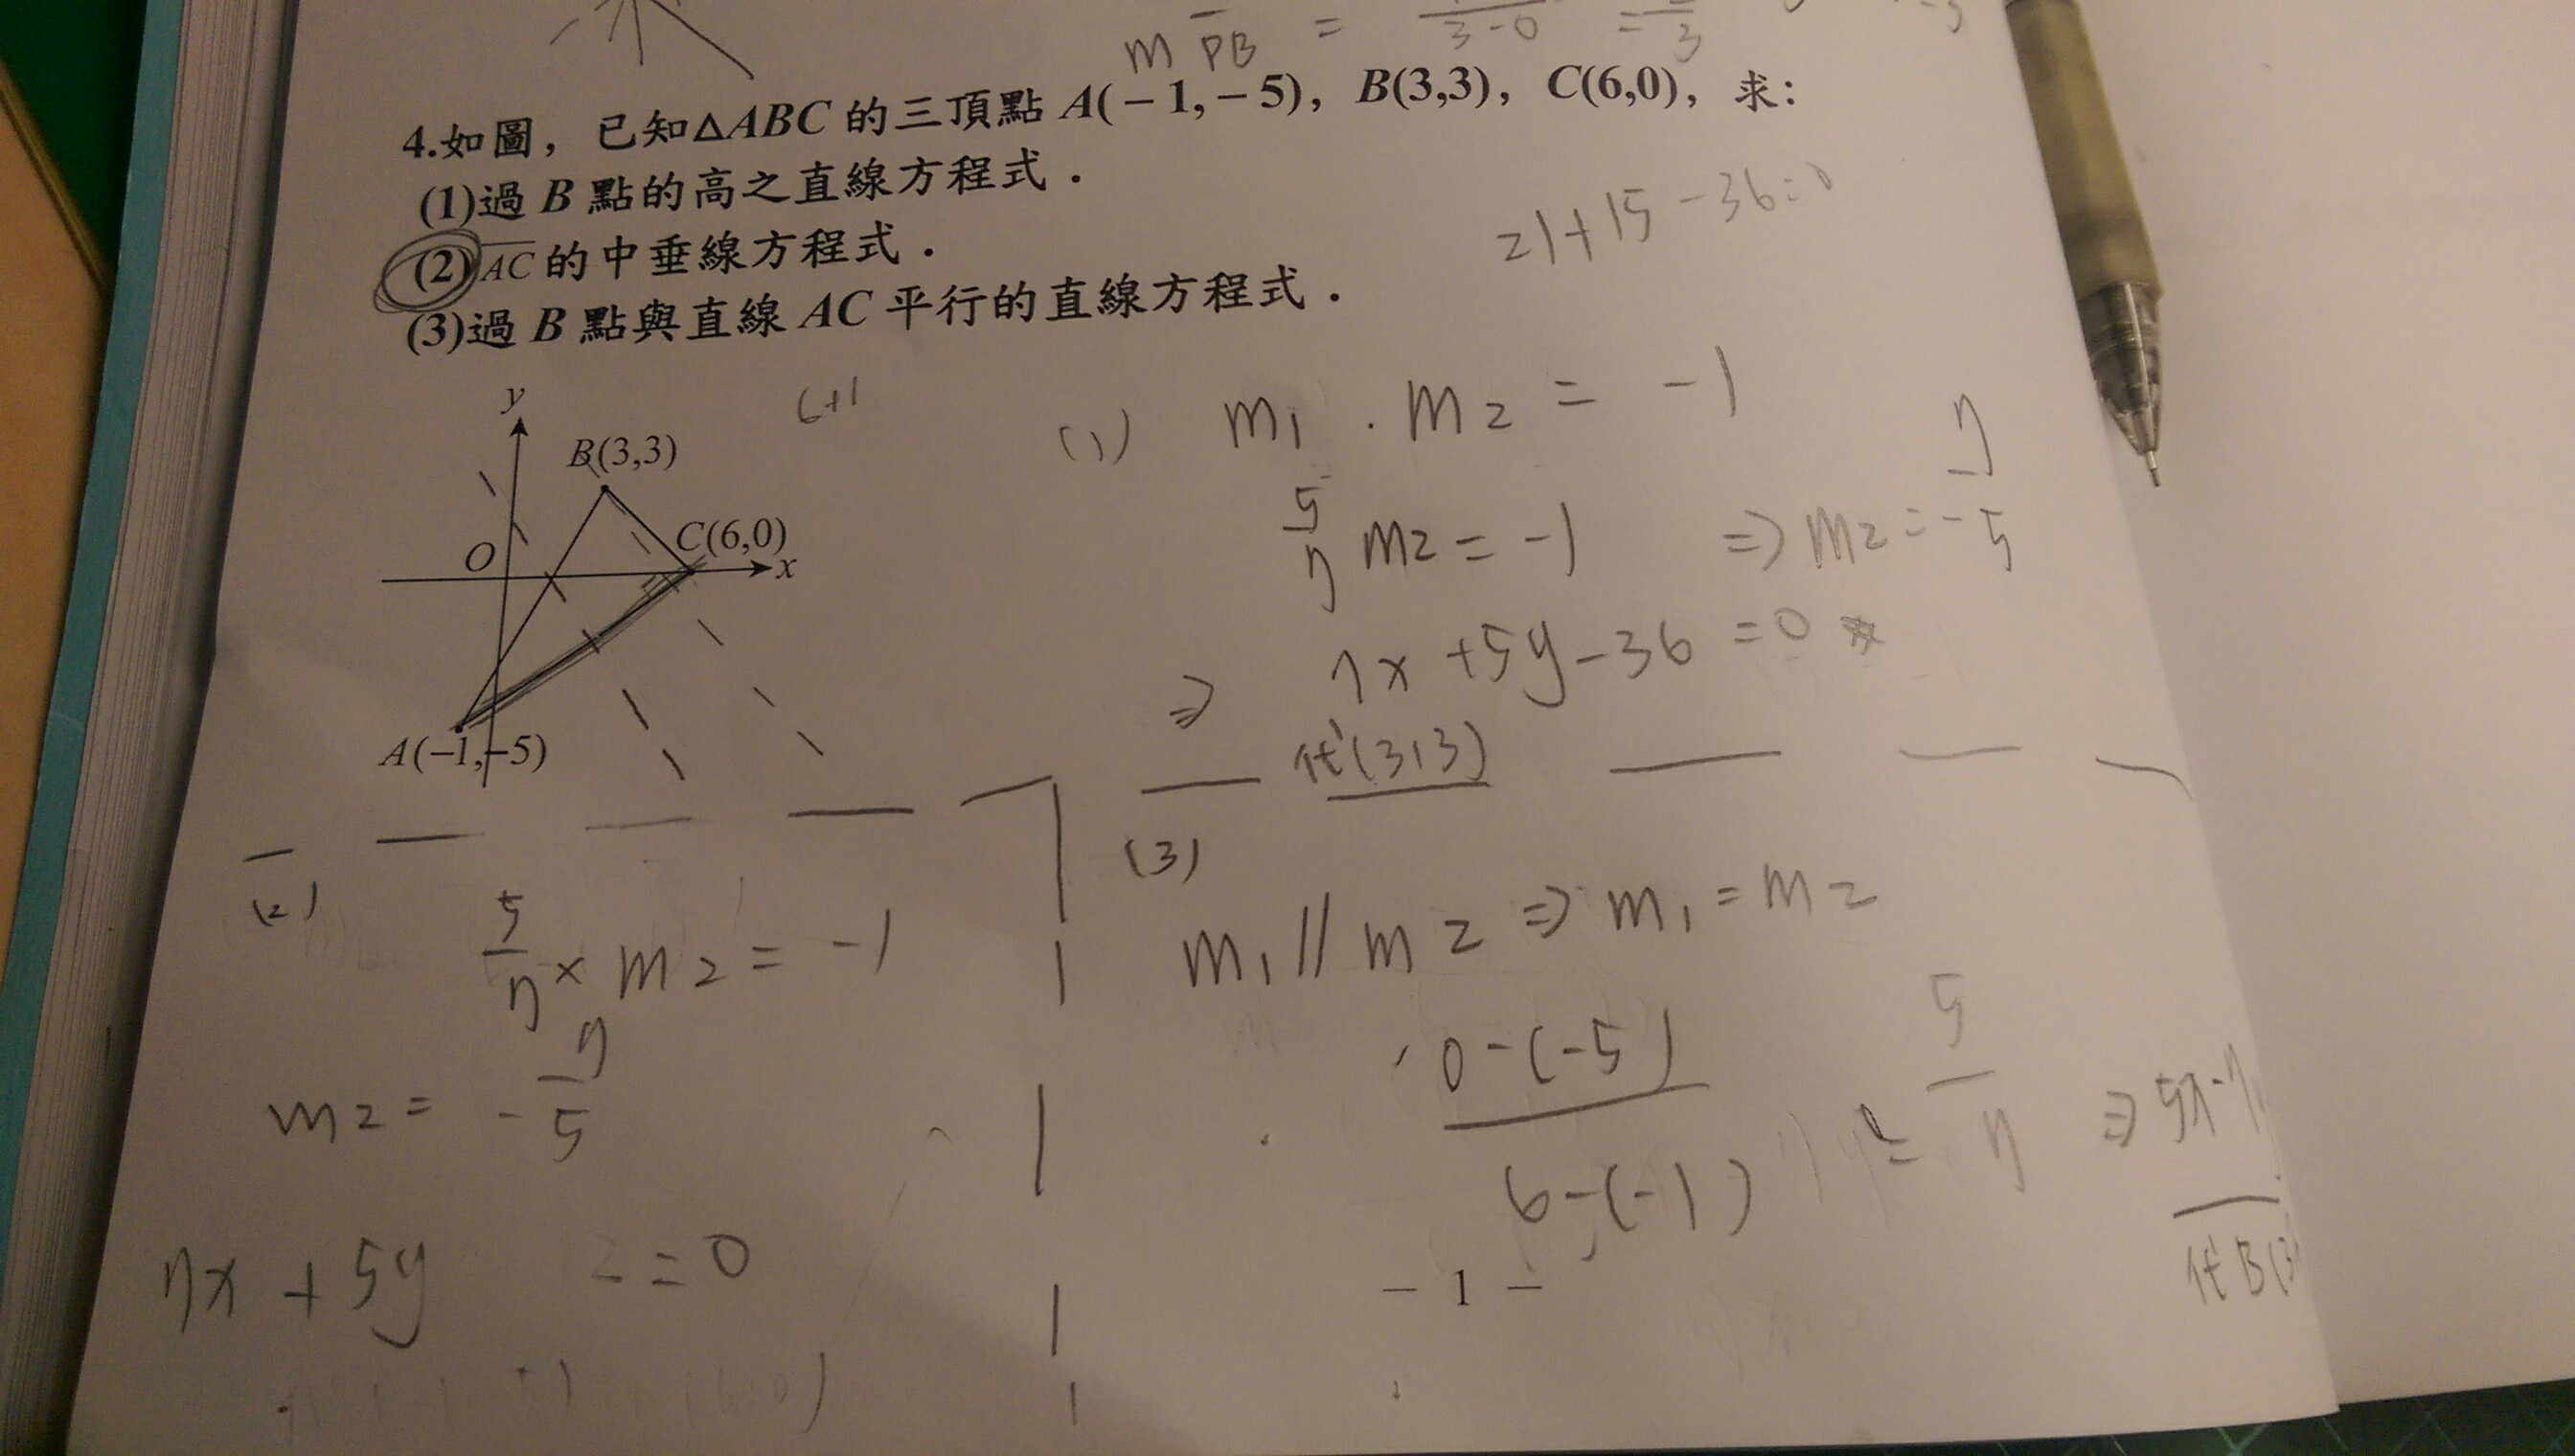 m PB = 3-0 = 3
4.如圖，已知△ABC 的三頂點 A(－1,－5)，B(3,3)，C(6,0)，求：
(1)過 B 點的高之直線方程式．
(2)AC 的中垂線方程式．
(3)過 B 點與直線 AC 平行的直線方程式．
21+15-36=0
6+1
y
B(3,3)
C(6,0)
O
x
A(−1,−5)
(1) m1 · m2 = -1
5/7 m2 = -1 ⇒ m2 = -7/5
⇒ 7x+5y-36=0
代(3,3)
(2)
5/7 × m2 = -1
m2 = -7/5
7x + 5y = 0
(3)
m1 // m2 ⇒ m1 = m2
0-(-5)/6-(-1) = 5/7 ⇒ 5x-7
代B(3
－ 1 －